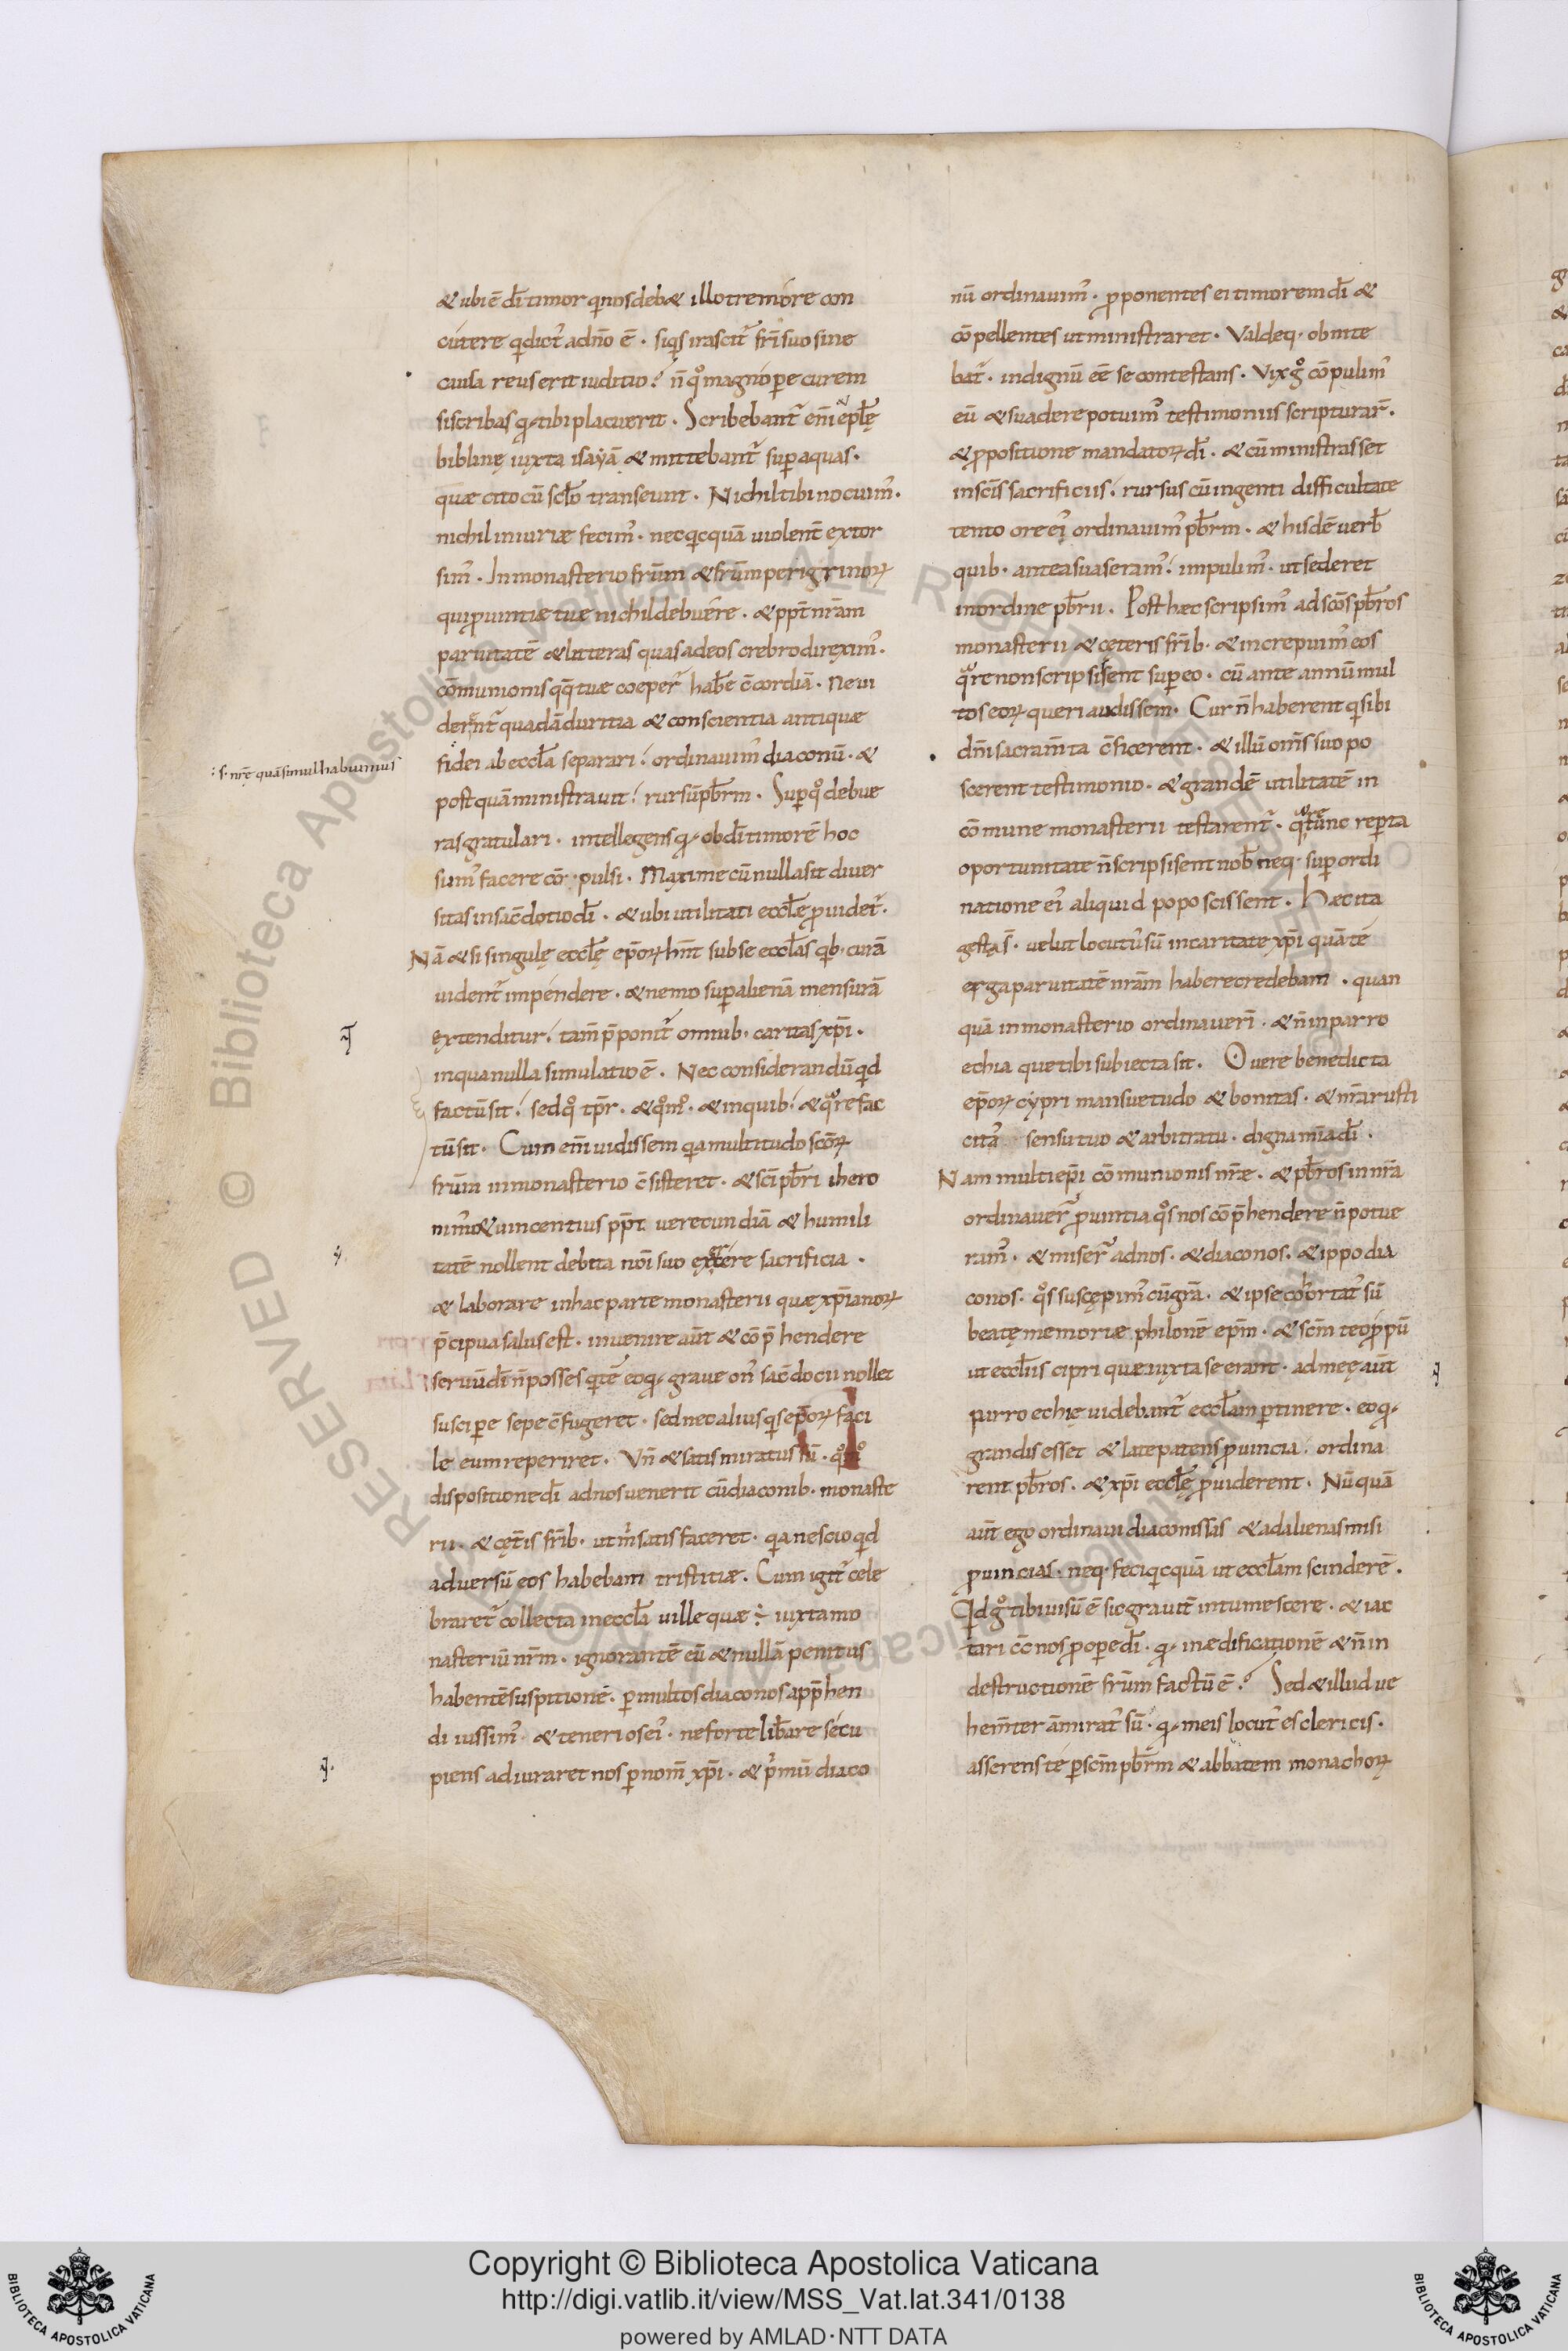 & ubi ē dī timor qui nos deb& illo tremore con
cutere qđ dictʼ a dn̄o ē. siqͥs irascit̄ fr̄i suo sine
causa reus erit iuditio? n̄ qͦ magnop̲e curem
si scribas qđ tibi placuerit. Scribebant̄ eni᷒ & ep̄lę
biblinę iuxta isayā & mittebant̄ sup̲ aquas.
quæ cito cū sclo᷒ transeunt. Nichil tibi nocuimʼ.
nichil iniuriæ fecimʼ. nec qͥcquā uiolent̄ extor
simʼ. In monasterio fr̄um & fr̄um perigrinoꝝ
qui ꝓuintiæ tuæ nichil debuēre. & ppt̄ nr̄am
paruitatē & litteras quas ad eos crebro direximʼ.
cōmunionis qͦqꝫ tuæ coeper̄ hab̄e c̄cordiā. Ne ui
derent̄ quadā duritia & conscientia antiquæ
fidei ab eccl̄a separari? ordinauimʼ diaconū. &
: s. nr̄ę quā simul habuimus
postquā ministrauit? rursū pb̄rm. Sup̲ qͦ debue
ras gratulari. intellegens qđ ob dī timorē hoc
sumʼ facere cōpulsi. Maxime cū nulla sit diuer
sitas in sac̄dotio dī. & ubi utilitati eccl̄ę ꝓuidet̄.
Nā & si singulę eccl̄ę ep̄oꝝ hn̄t sub se eccl̄as qͥb. curā
uident̄ impendere. & nemo sup̲ alienā mensurā
extenditur? tam̄ p̄ponit̄ omnib. caritas xp̄i.
in qua nulla simulatio ē. Nec considerandū qͥd
factū sit? sed qͦ tp̄r. & qͦmͦ. & in quib? & qͣre fac
tū sit. Cum eni᷒ uidissem qͥa multitudo scō̄ꝝ
fr̄um in monasterio c̄sisteret. & sc̄i pb̄ri ihero
nimʼ & uincentius ppt̄ uerecundiā & humili
tatē nollent debita nōi suo exercere sacrificia.
& laborare in hac parte monasterii quæ xp̄ianoꝝ
p̄cipua salus est. inuenire aūt & cōp̄hendere
seruū dī n̄ posses qͥ te᷒ eo qđ graue onʼ sac̄docii nollet
suscip̲e sepe c̄fugeret. sed nec alius qͥs ep̄oꝝ faci
le eum reperiret. Vn̄ & satis miratus sū. qͦmͦ
dispositione dī ad nos uenerit cū diaconib. monaste
rii. & cęt̄is fr̄ib. ut m̄ satisfaceret. qͥa nescio qͥd
aduersū eos habebam tristitiæ. Cum igit̄ cele
braret̄ collecta in eccl̄a uille quæ ÷ iuxta mo
nasteriū nr̄m. ignorantē eū & nullā penitus
habentē suspitionē. p̲ multos diaconos app̄hen
di iussimʼ & teneri os eiʼ. ne forte lib̄are se cu
piens adiuraret nos p̲ nom̄ xp̄i. & p̄mū diaco
nū ordinauimʼ. ꝓponentes ei timorem dī &
cōpellentes ut ministraret. Valdeqꝫ obnite
bat̄. indignū eē se contestans. Vix gͦ cōpulimʼ
eū & suadere potuimʼ testimoniis scripturar̄.
& ꝓpositione mandatoꝝ dī. & cū ministrasset
in sc̄is sacrificiis? rursus cū ingenti difficultate
tento ore eiʼ ordinauimʼ pb̄rm. & hisdē uerb̄
quib. antea suaseramʼ? impulimʼ. ut sederet
in ordine pb̄rii. Post hæc scripsimʼ ad scōs pb̄ros
monasterii & ceteris fr̄ib. & increpuimʼ eos
qͣre non scripsissent sup̲ eo. cū ante annū mul
tos eoꝝ queri audissem. Cur n̄ haberent qͥ sibi
dn̄i sacram̄ta c̄ficerent. & illū om̄s suo po
scerent testimonio. & grandē utilitatē in
cōmune monasterii testarent̄. qͣre tūnc rep̲ta
oportunitate n̄ scripsisent nob̄ neqꝫ sup̲ ordi
natione eiʼ aliquid poposcissent. Hæc ita
gesta s̄. uelut locutʼ sū in caritate xp̄i quā te
erga paruitatē nr̄am habere credebam. quan
quā in monasterio ordinauerī. & n̄ in parro
echia que tibi subiecta sit. O uere benedicta
ep̄oꝝ cypri mansuetudo & bonitas. & nr̄a rusti
citas sensu tuo & arbitratu. digna mīa dī.
Nam multi ep̄i cōmunionis nr̄æ. & pb̄ros in nr̄a
ordinauer̄ ꝓuintia qͦs nos cōp̄hendere n̄ potue
ramʼ. & miser̄ ad nos. & diaconos. & ippodia
conos. qͦs suscępimʼ cū grā. & ipse cohortatʼ sū
beatę memoriæ philonē ep̄m. & sc̄m teoꝓpū
ut eccl̄iis cipri quæ iuxta se erant. ad meę aūt
parroechię uidebant̄ eccl̄am p̲tinere. eo qđ
grandis esset & late patens ꝓuincia. ordina
rent pb̄ros. & xp̄i eccl̄ę ꝓuiderent. Nūquā
aūt ego ordinaui diaconissas & ad alienas misi
ꝓuincias. neqꝫ feci qͥcquā ut eccl̄am scinderē.
Qd gͦ tibi uisū ē sic grauit̄ intumescere. & iac
tari c̄ nos ꝓ op̲e dī. qđ in ædificationē & n̄ in
destructionē fr̄um factū ē? Sed & illud ue
hem̄ter āmiratʼ sū. qđ meis locutʼ es clericis.
asserens te p̲ sc̄m pb̄rm & abbatem monachoꝝ
Copyright © Biblioteca Apostolica Vaticana
http://digi.vatlib.it/view/MSS_Vat.lat.341/0138
powered by AMLAD·NTT DATA
BIBLIOTECA APOSTOLICA VATICANA
BIBLIOTECA APOSTOLICA VATICANA